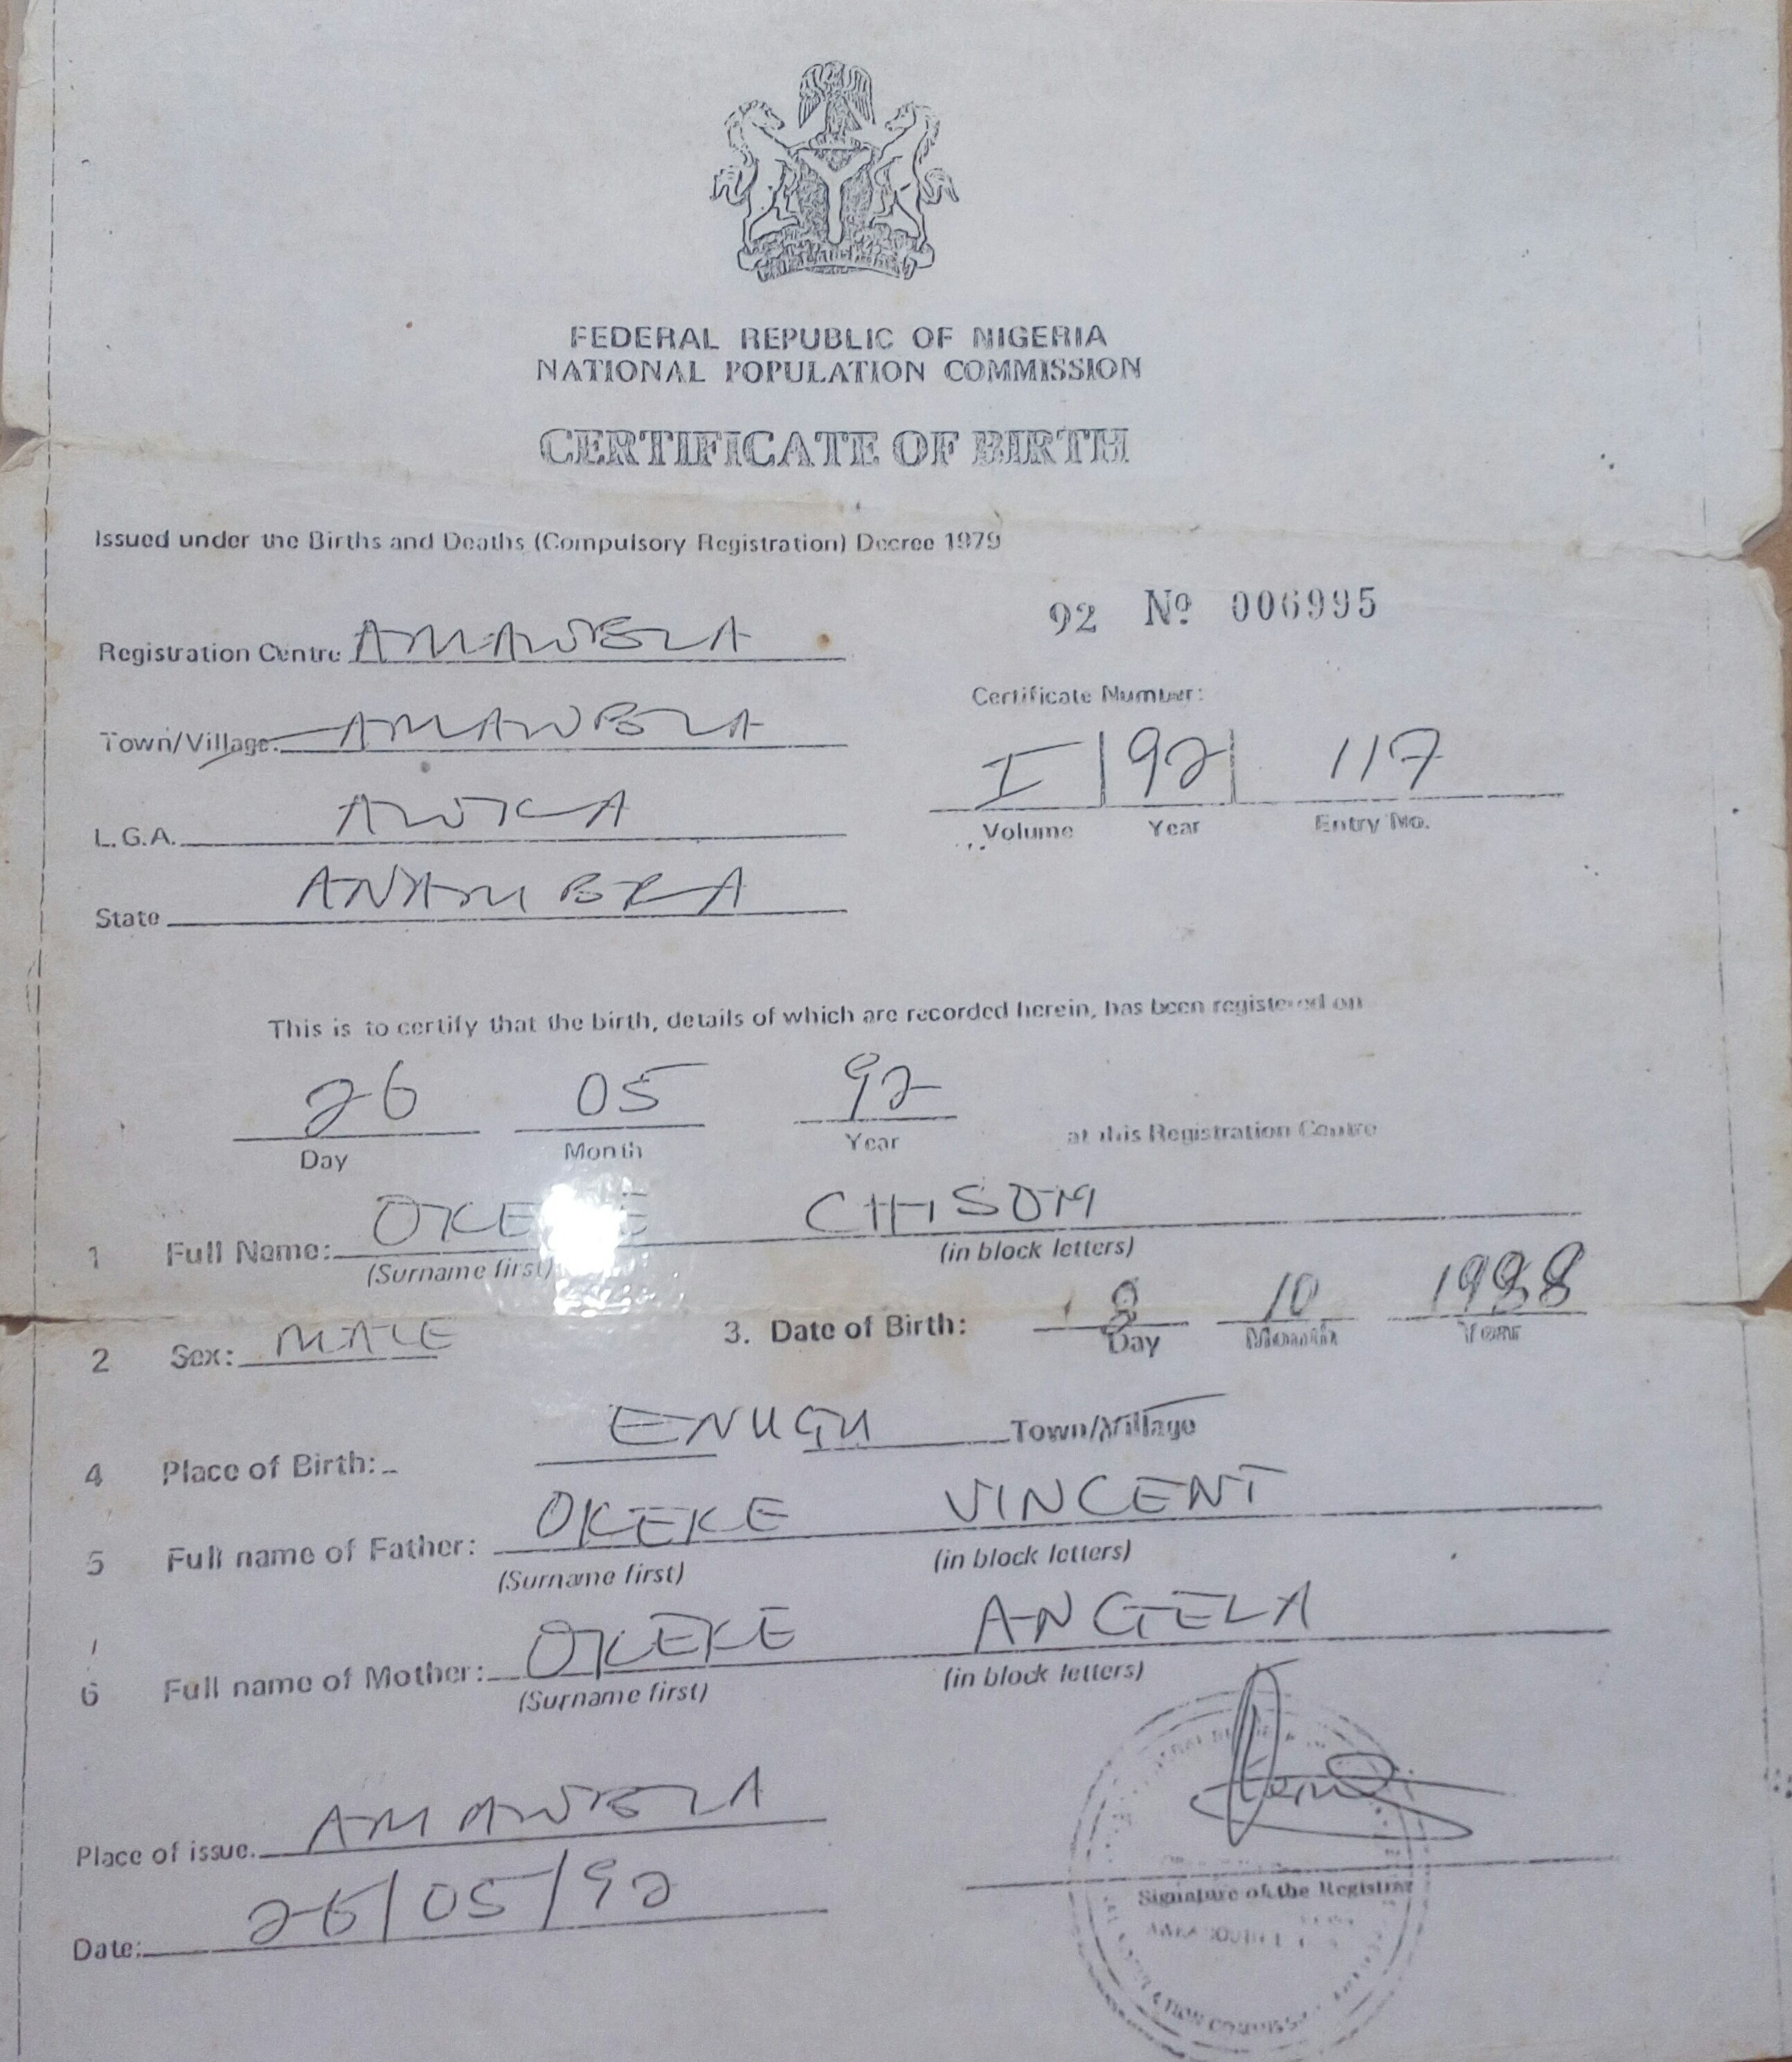 FEDERAL REPUBLIC OF NIGERIA
NATIONAL POPULATION COMMISSION
CERTIFICATE OF BIRTH
Issued under the Births and Deaths (Compulsory Registration) Decree 1979
92 No 006995
Registration Centre AMAWBIA
Town/Village. AMAWBIA
Certificate Number:
I | 92 | 117
Volume Year Entry No.
L.G.A. AWKA
State ANAMBRA
This is to certify that the birth, details of which are recorded herein, has been registered on
26 05 92
Day Month Year at this Registration Centre
1 Full Name: CHISOM
(Surname first) (in block letters)
2 Sex: MALE 3. Date of Birth: 10
Day Month Year
4 Place of Birth: ENUGU Town/Village
5 Full name of Father: OKEKE VINCENT
(Surname first) (in block letters)
6 Full name of Mother: OKEKE ANGELA
(Surname first) (in block letters)
Place of issue. AMAWBIA
Date: 26/05/92
Signature of the Registrar